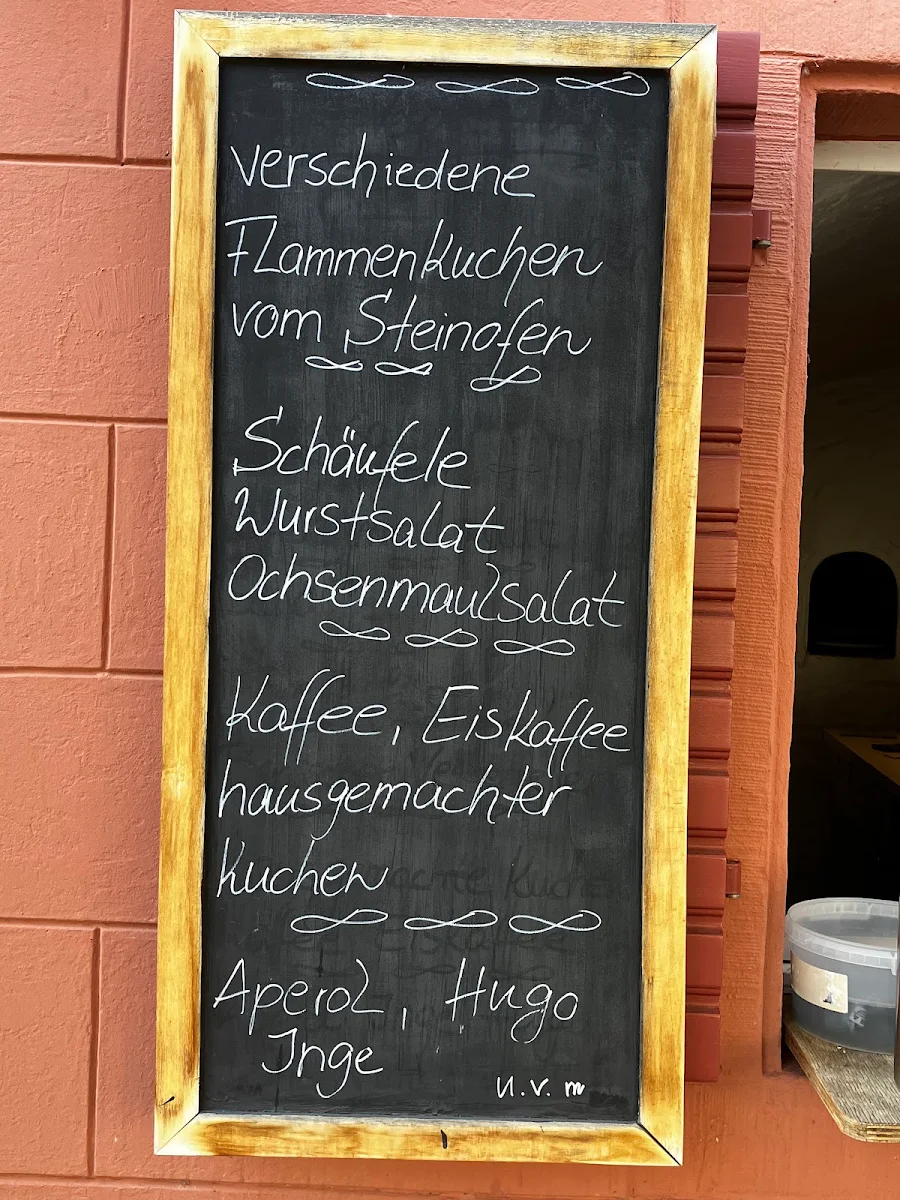 verschiedene
Flammenkuchen
vom Steinofen
Schäufele
Wurstsalat
Ochsenmaulsalat
Kaffee, Eiskaffee
hausgemachter
Kuchen
Aperol, Hugo
Inge
u.v.m